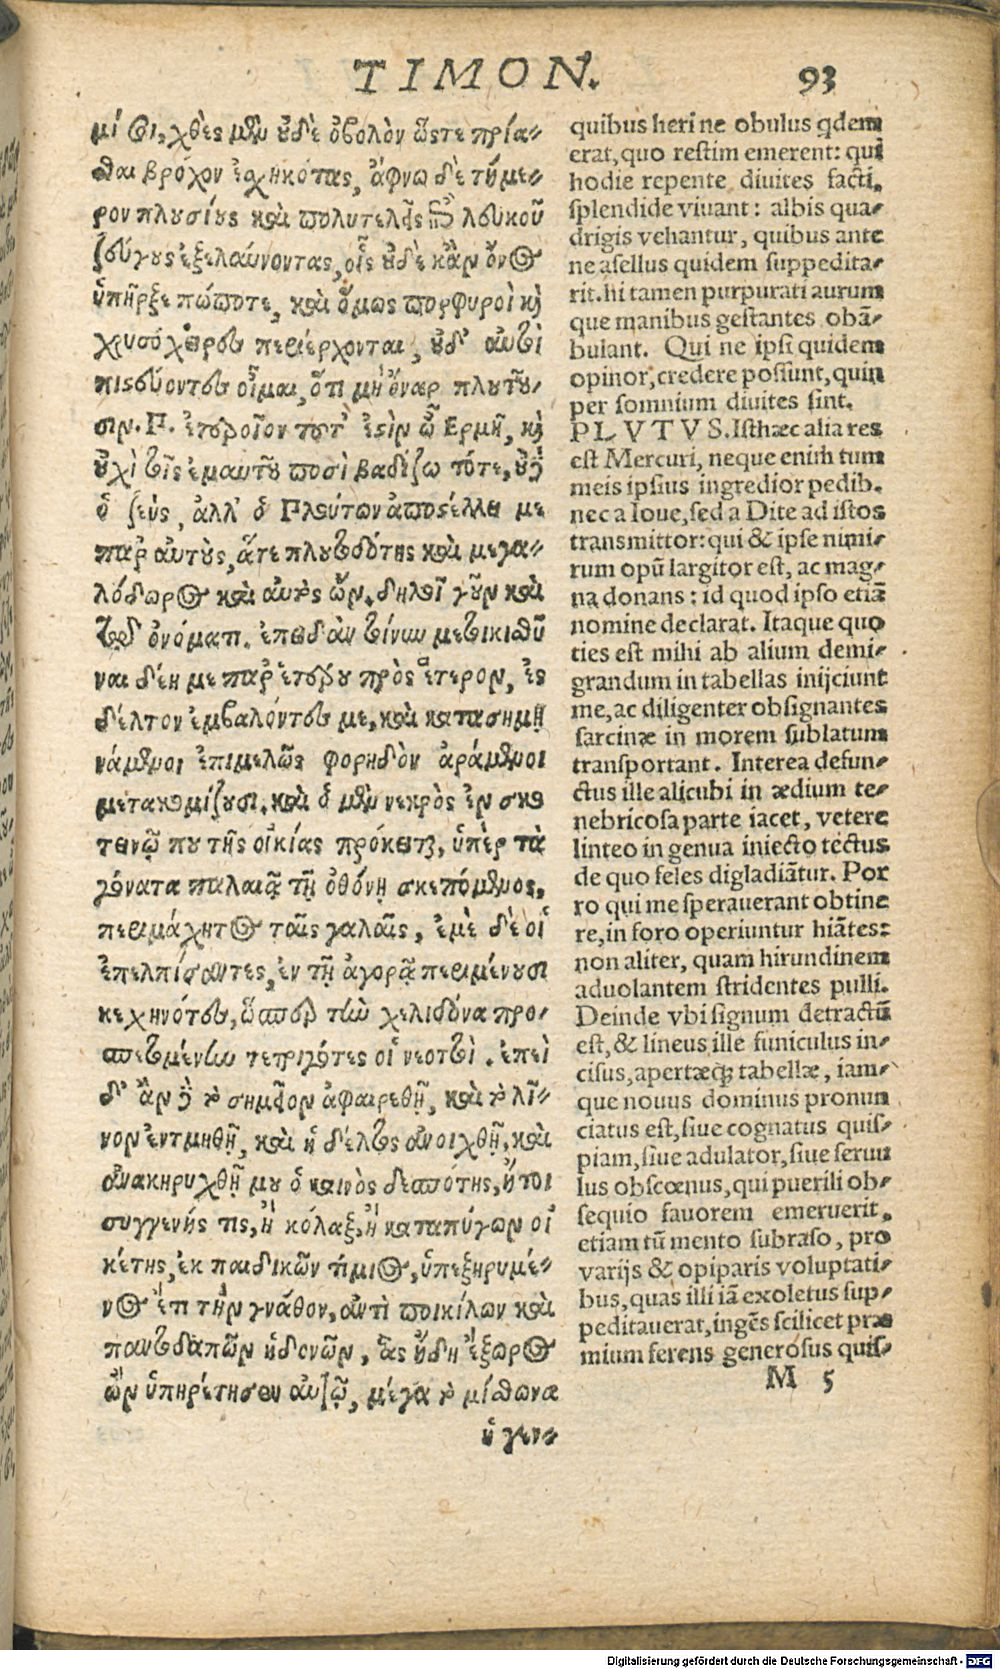 TIMON. 93
μίοι, χθὲς μὲν οὐδὲ ὀβολὸν ὥστε πρία-
σθαι βρόχον ἐσχηκότας, ἄφνω δὲ τήμε-
ρον πλουσίους καὶ πολυτελεῖς ἐπὶ λευκοῦ
ζεύγους ἐξελαύνοντας, οἷς οὐδὲ κἂν ὄνος
ὑπῆρξε πώποτε, καὶ ὅμως πορφυροῖ καὶ
χρυσόχειρες περιέρχονται, οὐδ' αὐτοὶ
πιστεύοντες οἶμαι, ὅτι μὴ ὄναρ πλουτοῦ-
σιν. Π. ἑτεροῖον τοῦτ' ἐστὶν ὦ Ερμῆ, καὶ
οὐχὶ τοῖς ἐμαυτοῦ ποσὶ βαδίζω τότε, οὐδὲ
ὁ ζεὺς, ἀλλ' ὁ Πλούτων ἀποστέλλει με
παρ' αὐτοὺς, ἅτε πλουτοδότης καὶ μεγα-
λόδωρος καὶ αὐτὸς ὤν. δηλοῖ γοῦν καὶ
τῷ ὀνόματι. ἐπειδὰν τοίνυν μετοικισθῆ
ναι δέῃ με παρ' ἑτέρου πρὸς ἕτερον, ἐς
δέλτον ἐμβαλόντες με, καὶ κατασημῃ
νάμενοι ἐπιμελῶς φορηδὸν ἀράμενοι
μετακομίζουσι. καὶ ὁ μὲν νεκρὸς ἐν σκο
τεινῷ που τῆς οἰκίας πρόκειται, ὑπὲρ τὰ
γόνατα παλαιᾷ τῇ ὀθόνῃ σκεπόμενος,
περιμάχητος ταῖς γαλαῖς, ἐμὲ δὲ οἱ
ἐπελπίσαντες, ἐν τῇ ἀγορᾷ περιμένουσι
κεχηνότες, ὥσπερ τὴν χελιδόνα προσ-
πετομένην τετριγότες οἱ νεοττοί. ἐπεὶ
δ' ἂν δὲ τὸ σημεῖον ἀφαιρεθῇ, καὶ τὸ λί-
νον ἐντμηθῇ, καὶ ἡ δέλτος ἀνοιχθῇ, καὶ
ἀνακηρυχθῇ μου ὁ καινὸς δεσπότης, ἤτοι
συγγενής τις, ἢ κόλαξ, ἢ καταπύγων οἰ
κέτης, ἐκ παιδικῶν τίμιος, ὑπεξηρυμέ-
νος ἔτι τὴν γνάθον, ἀντὶ ποικίλων καὶ
παντοδαπῶν ἡδονῶν, ἃς ἤδη ἔξωρος
ὢν ὑπηρέτησεν αὐτῷ, μέγα τὸ μίσθωμα
ὁ γεν-
quibus heri ne obulus qdem
erat, quo restim emerent: qui
hodie repente diuites facti,
splendide viuant: albis qua-
drigis vehantur, quibus ante
ne asellus quidem suppedita-
rit. hi tamen purpurati aurum
que manibus gestantes obā-
bulant. Qui ne ipsi quidem
opinor, credere possunt, quin
per somnium diuites sint.
PLVTVS. Isthæc alia res
est Mercuri, neque enim tum
meis ipsius ingredior pedib.
nec a Ioue, sed a Dite ad istos
transmittor: qui & ipse nimi-
rum opū largitor est, ac mag-
na donans: id quod ipso etiā
nomine declarat. Itaque quo
ties est mihi ab alium demi-
grandum in tabellas inijciunt
me, ac diligenter obsignantes
sarcinæ in morem sublatum
transportant. Interea defun-
ctus ille alicubi in ædium te-
nebricosa parte iacet, vetere
linteo in genua iniecto tectus
de quo feles digladiātur. Por
ro qui me sperauerant obtine
re, in foro operiuntur hiātes:
non aliter, quam hirundinem
aduolantem stridentes pulli.
Deinde vbi signum detractū
est, & lineus ille funiculus in-
cisus, apertæq; tabellæ, iam-
que nouus dominus pronun
ciatus est, siue cognatus quis-
piam, siue adulator, siue seruu
lus obscœnus, qui puerili ob-
sequio fauorem emeruerit,
etiam tū mento subraso, pro
varijs & opiparis voluptati-
bus, quas illi iā exoletus sup-
peditauerat, ingēs scilicet præ
mium ferens generosus quis-
M 5
Digitalisierung gefördert durch die Deutsche Forschungsgemeinschaft - DFG